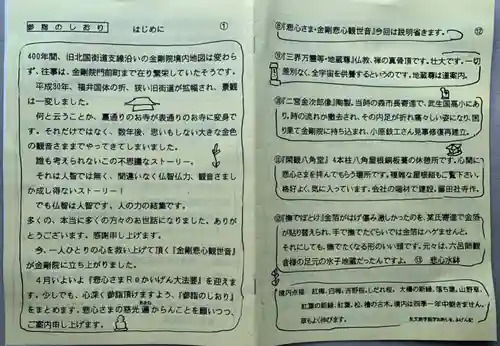 参詣のしおり
はじめに
①
400年間、旧北国街道支線沿いの金剛院境内地図は変わら
ず、往事は、金剛院門前町まで在り繁栄していたそうです。
平成30年、福井国体の折、狭い旧街道が拡幅され、景観
は一変しました。
何と云うことか、裏通りのお寺が表通りのお寺に変身で
す。それだけではなく、数年後、思いもしない大きな金色
の観音さままでやってきてしまいました。
誰も考えられないこの不思議なストーリー。
それは人智では無く、間違いなく仏智仏力、観音さまし
か成し得ないストーリー！
でも仏智は人智です、人の力の結集です。
多くの、本当に多くの方々のお世話になりました、ありが
とうございます。感謝申し上げます。
今、一人ひとりの心を救い上げて頂く『金剛悲心観世音』
が金剛院に立ち上がりました。
4月いよいよ『悲心さまReかいげん大法要』を迎えま
す。少しでも、心深く参詣頂けますよう、『参詣のしおり』
をまとめます。悲心さまの慈光遍からんことを願いつつ、
ご案内申し上げます。
⑫
⑧『悲心さま・金剛悲心観世音』今回は説明省きます。
⑨『三界万霊等・地蔵尊』仏教、禅の真骨頂です。壮大です。一切
差別なく、全宇宙を供養するというのです。地蔵尊は道案内。
⑩『二宮金次郎像』陶製。当時の森市長寄進で、武生国高小にあ
り、時の流れか撤去され、その内足が折れ痛々しい姿になり、困
り果て金剛院に持ち込まれ、小原鉄工さん見事修復再建立。
⑪『閑観八角堂』 4本柱八角屋根銅板葺の休憩所です。心閑に
悲心さまを拝んでもらう場所です。複雑な屋根組もご覧下さい。
格好よく、気に入っています。会社の端材で建設。藤田社寺作。
⑫『撫でぼとけ』金箔がはげ傷み激しかったのを、某氏寄進で金箔
が貼り替えられ、手で撫でたぐらいでは金箔はハゲませんと。
それにしても、撫でたくなる形のいい頭です。元々は、六呂間観
音様の足元の水子地蔵だったんですよ。 ⑬ 悲心水鉢
境内点描 紅梅、白梅、吉野桜、しだれ桜、 大欅の新緑、落ち葉、山野草、
紅葉の新緑・紅葉、松、檜の古木。境内は四季一年中飽きません。
草もよく伸びます。